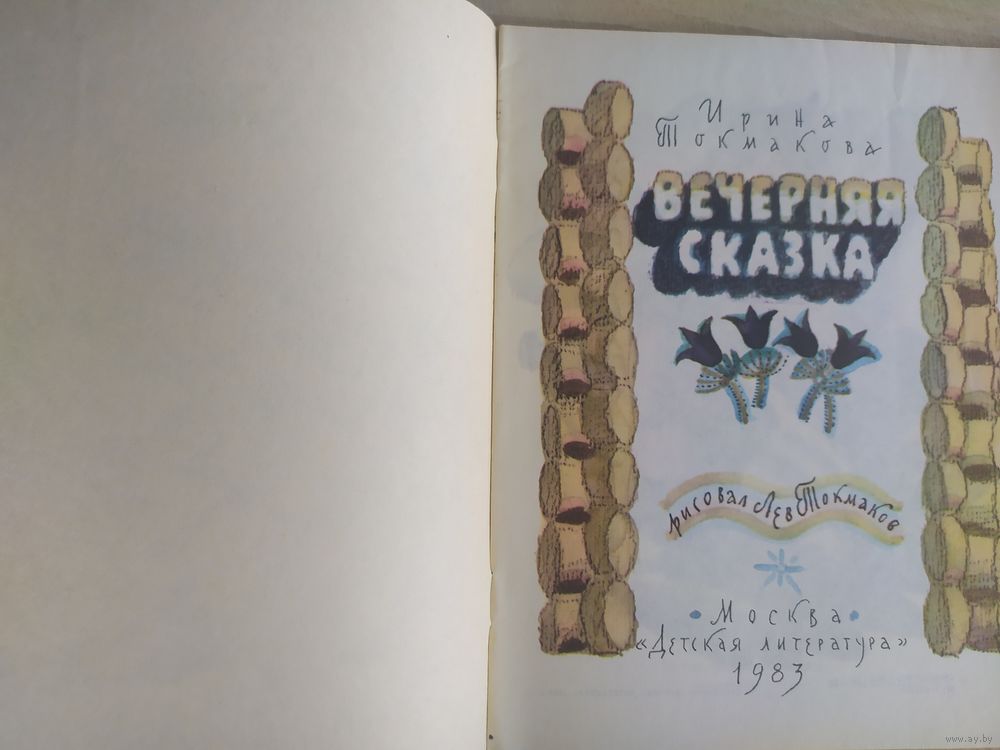 Ирина
Токмакова
ВЕЧЕРНЯЯ
СКАЗКА
рисовал Лев Токмаков
• Москва •
«Детская литература»
1983
www.ay.by